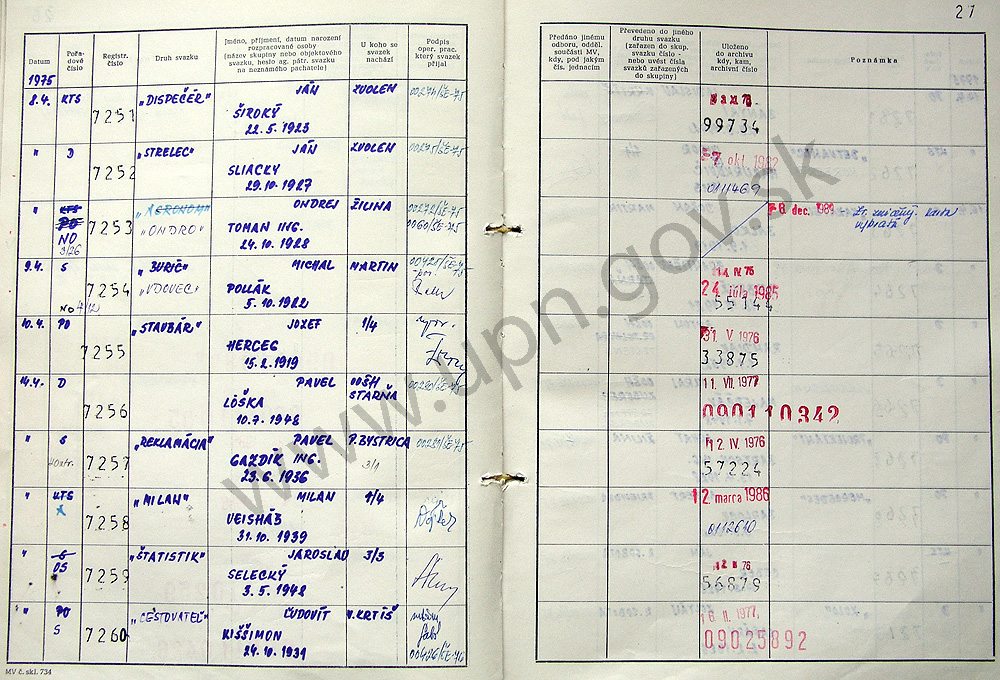 21
Datum
Pořadové číslo
Registr. číslo
Druh svazku
Jméno, příjmení, datum narození rozpracované osoby (název skupiny nebo objektového svazku, heslo ag. pátr. svazku na neznámého pachatele)
U koho se svazek nachází
Podpis oper. prac. který svazek přijal
Předáno jinému odboru, odděl. součásti MV, kdy, pod jakým čís. jednacím
Převedeno do jiného druhu svazku (zařazen do skup. svazku číslo - nebo uvést čísla svazků zařazených do skupiny)
Uloženo do archivu kdy, kam, archivní číslo
Poznámka
1975
8.4. KTS 7251 „DISPEČER" JÁN ZVOLEN 00274/ŠE-75
ŠIROKÝ
22.5.1923
99734
" D 7252 „STRELEC" JÁN ZVOLEN 00275/ŠE-75
SLIACKY
29.10.1927
7. okt. 1982
0111469
" KTS PO NO 3/26 7253 „AGRONOM" „ONDRO" ONDREJ ŽILINA 00272/ŠE-75
TOMAN ING. 0060/ŠE-75
24.10.1928
8 dec. 1989 Zv. zničený karta vybratá
9.4. S 7254 „BURIČ" „VDOVEC" MICHAL MARTIN
POLLÁK
NO 4/12 5.10.1922
14. IV. 76
24 júla 1985
55144
10.4. PO 7255 „STAVBÁR" JOZEF 1/4
HERCEG
15.2.1919
31. V 1976
33875
14.4. D 7256 „ PAVEL OOŠH STARŇA 00280/ŠE-75
LÔŠKA
10.7.1948
11. VII. 1977
090110342
" S 7257 „REKLAMÁCIA" PAVEL P. BYSTRICA 00281/ŠE-75
GAZDÍK ING. 3/1
23.6.1936
12. IV. 1976
57224
" KTS 7258 „MILAN" MILAN 1/4
VEISHÁB
31.10.1939
12. marca 1986
0112610
" 6 OS 7259 „ŠTATISTIK" JAROSLAV 3/3
SELECKÝ
3.5.1942
76
56879
" PO S 7260 „CESTOVATEĽ" ĽUDOVÍT V. KRTÍŠ
KIŠŠIMON
24.10.1931 00426/ŠE-76
16. II. 1977
09025892
MV č. skl. 734
www.upn.gov.sk